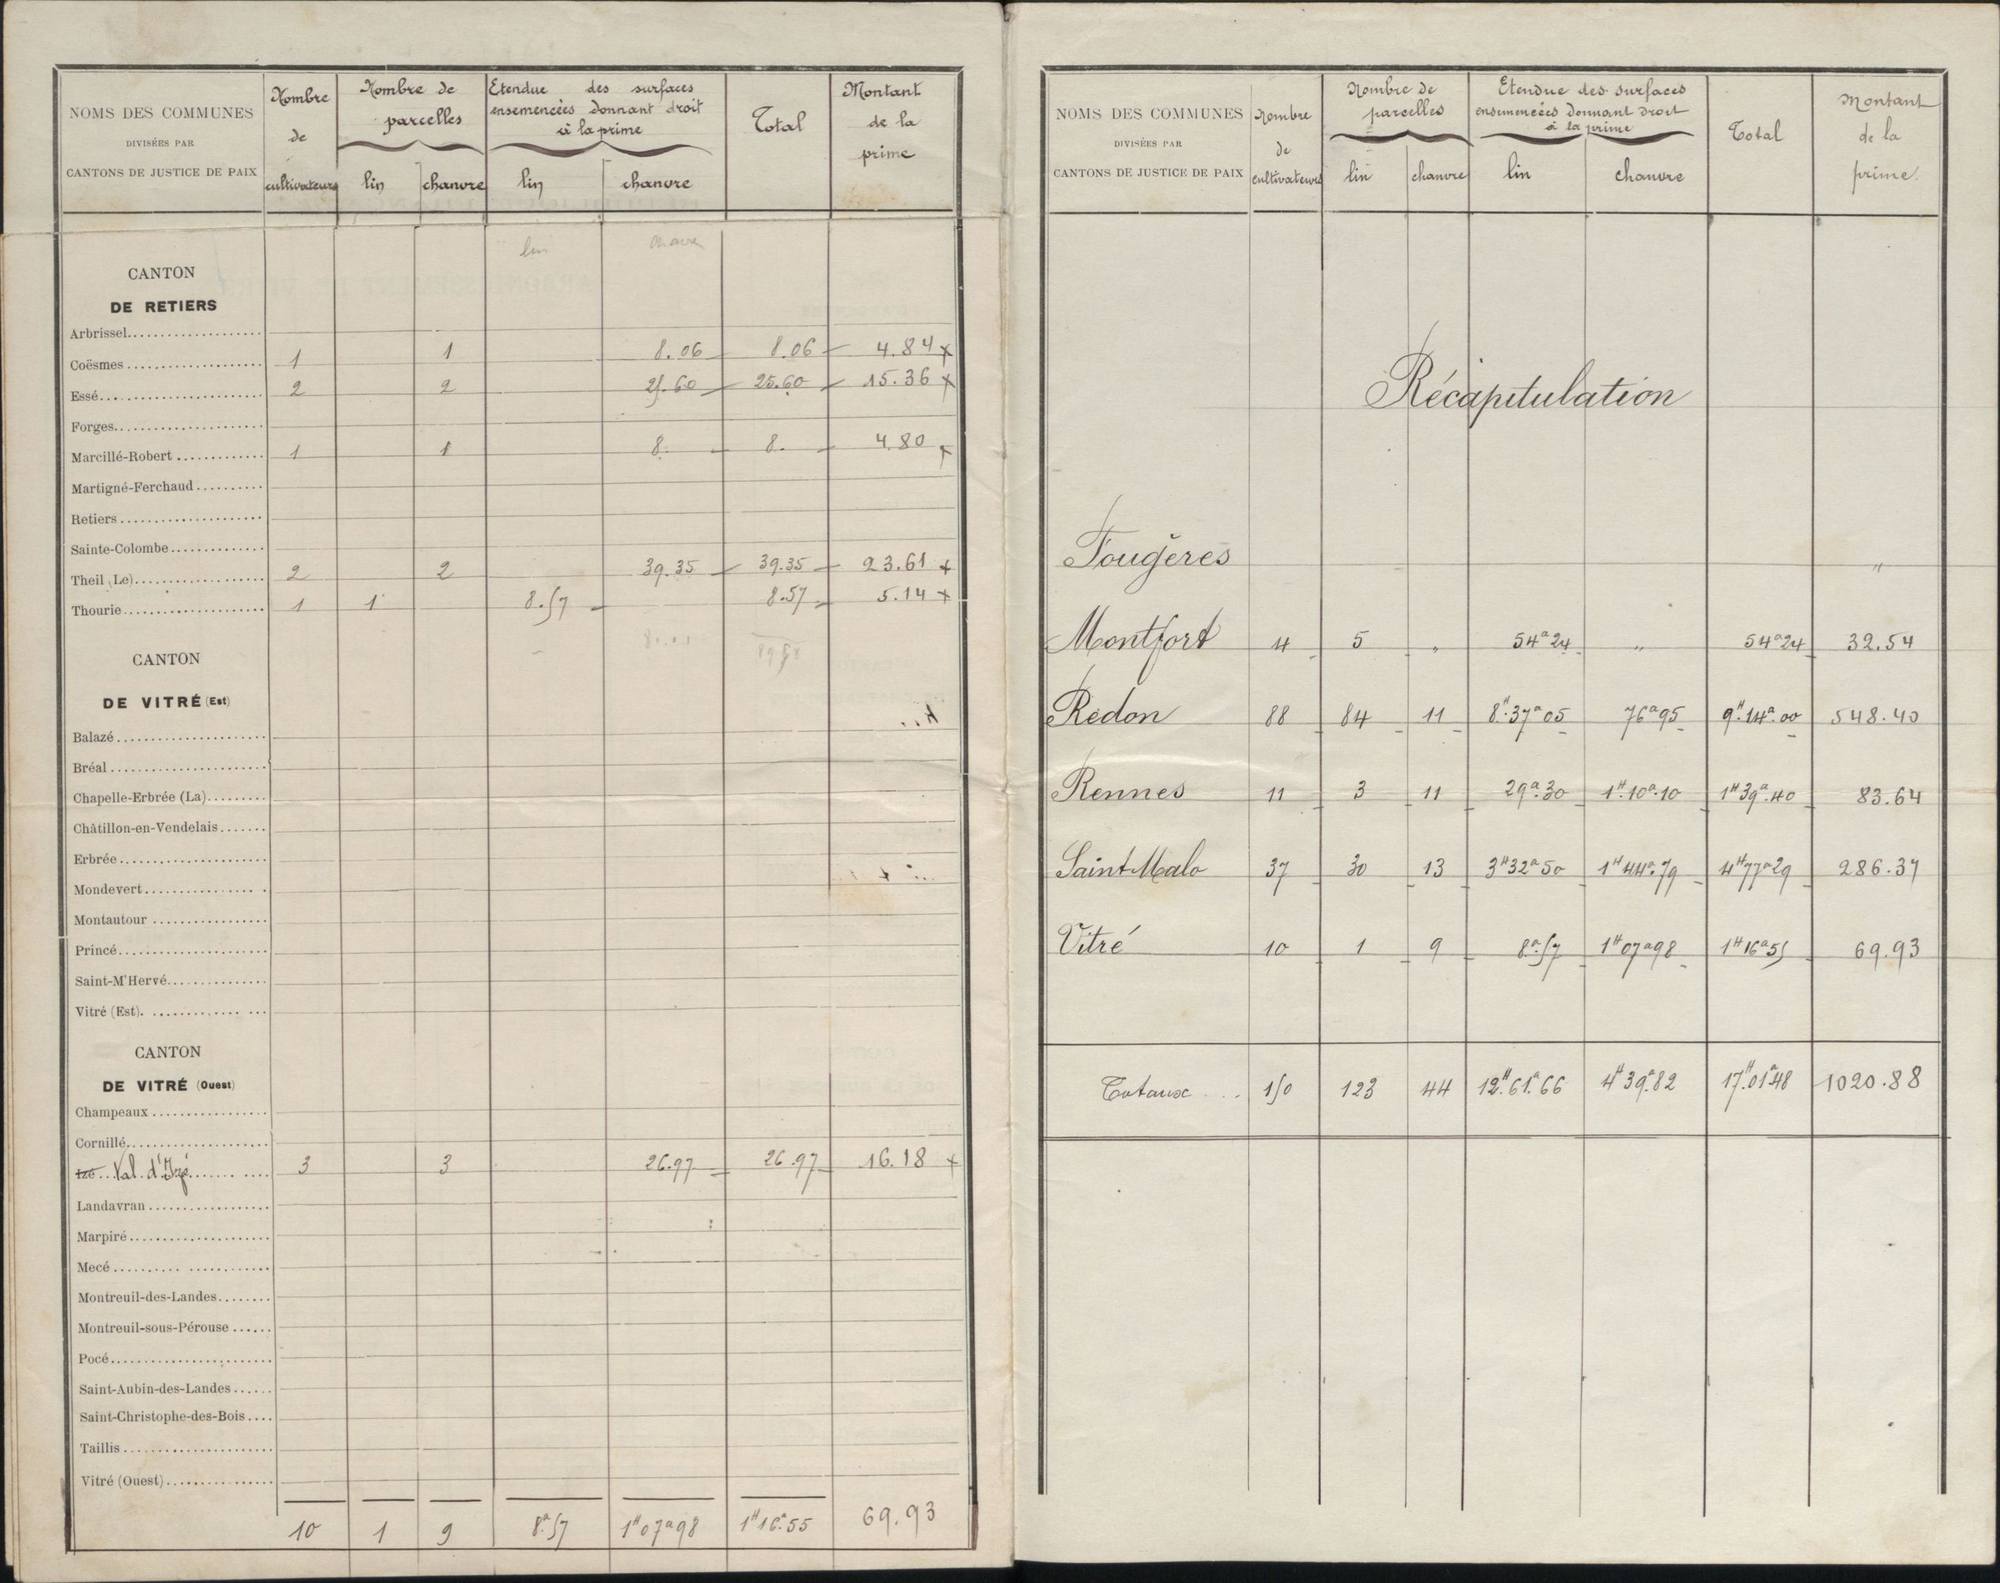 NOMS DES COMMUNES
DIVISÉES PAR
CANTONS DE JUSTICE DE PAIX
Nombre de cultivateurs
Nombre de parcelles
lin chanvre
Etendue des surfaces
ensemencées donnant droit
à la prime
lin chanvre
Total
Montant de la prime
lin
CANTON
DE RETIERS
Arbrissel
Coësmes 1 1 8.06 8.06 4.84 x
Essé 2 2 25.60 25.60 15.36 x
Forges
Marcillé-Robert 1 1 8. 8. 4.80 x
Martigné-Ferchaud
Retiers
Sainte-Colombe
Theil (Le) 2 2 39.35 39.35 23.61 x
Thourie 1 1 8.57 8.57 5.14 x
CANTON
DE VITRÉ (Est)
Balazé
Bréal
Chapelle-Erbrée (La)
Châtillon-en-Vendelais
Erbrée
Mondevert
Montautour
Princé
Saint-M'Hervé
Vitré (Est)
CANTON
DE VITRÉ (Ouest)
Champeaux
Cornillé
Izé Val d'Izé 3 3 26.97 26.97 16.18 x
Landavran
Marpiré
Mecé
Montreuil-des-Landes
Montreuil-sous-Pérouse
Pocé
Saint-Aubin-des-Landes
Saint-Christophe-des-Bois
Taillis
Vitré (Ouest)
10 1 9 8ª.57 1ᴴ07ª98 1ᴴ16ª.55 69.93
NOMS DES COMMUNES
DIVISÉES PAR
CANTONS DE JUSTICE DE PAIX
Nombre de cultivateurs
Nombre de parcelles
lin chanvre
Etendue des surfaces
ensemencées donnant droit
à la prime
lin chanvre
Total
Montant de la prime.
Récapitulation
Fougères "
Montfort 4 5 " 54ª24 " 54ª24 32.54
Redon 88 84 11 8ᴴ.37ª05 76ª95 9ᴴ.14ª.00 548.40
Rennes 11 3 11 29ª.30 1ᴴ.10ª.10 1ᴴ39ª.40 83.64
Saint-Malo 37 30 13 3ᴴ32ª50 1ᴴ44ª.79 4ᴴ77ª29 286.37
Vitré 10 1 9 8ª.57 1ᴴ07ª98 1ᴴ16ª55 69.93
Totaux ... 150 123 44 12ᴴ.61ª.66 4ᴴ39ª.82 17ᴴ.01ª48 1020.88